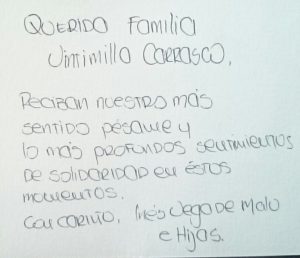 QUERIDO Familia
Jimimillo CARRASCO,
RECIBAN NUESTRO MÁS
SENTIDO PÉSAME Y
LO MÁS PROFUNDOS SENTIMIENTOS
DE SOLIDARIDAD EN ÉSTOS
MOMENTOS.
CON CARIÑO, INÉS VEGA DE MALO
e HIJAS.